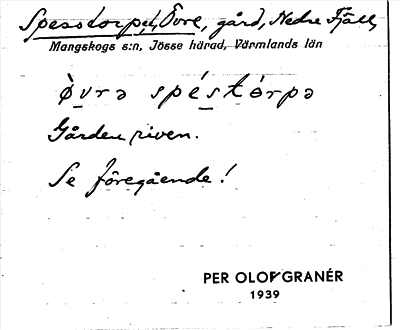 Spesstorpet, Övre, gård, Nedre Fjäll,
Mangskogs s:n, Jösse härad, Värmlands län
òvrə spéstórpə
Gården riven.
Se föregående!
PER OLOF GRANÉR
1939